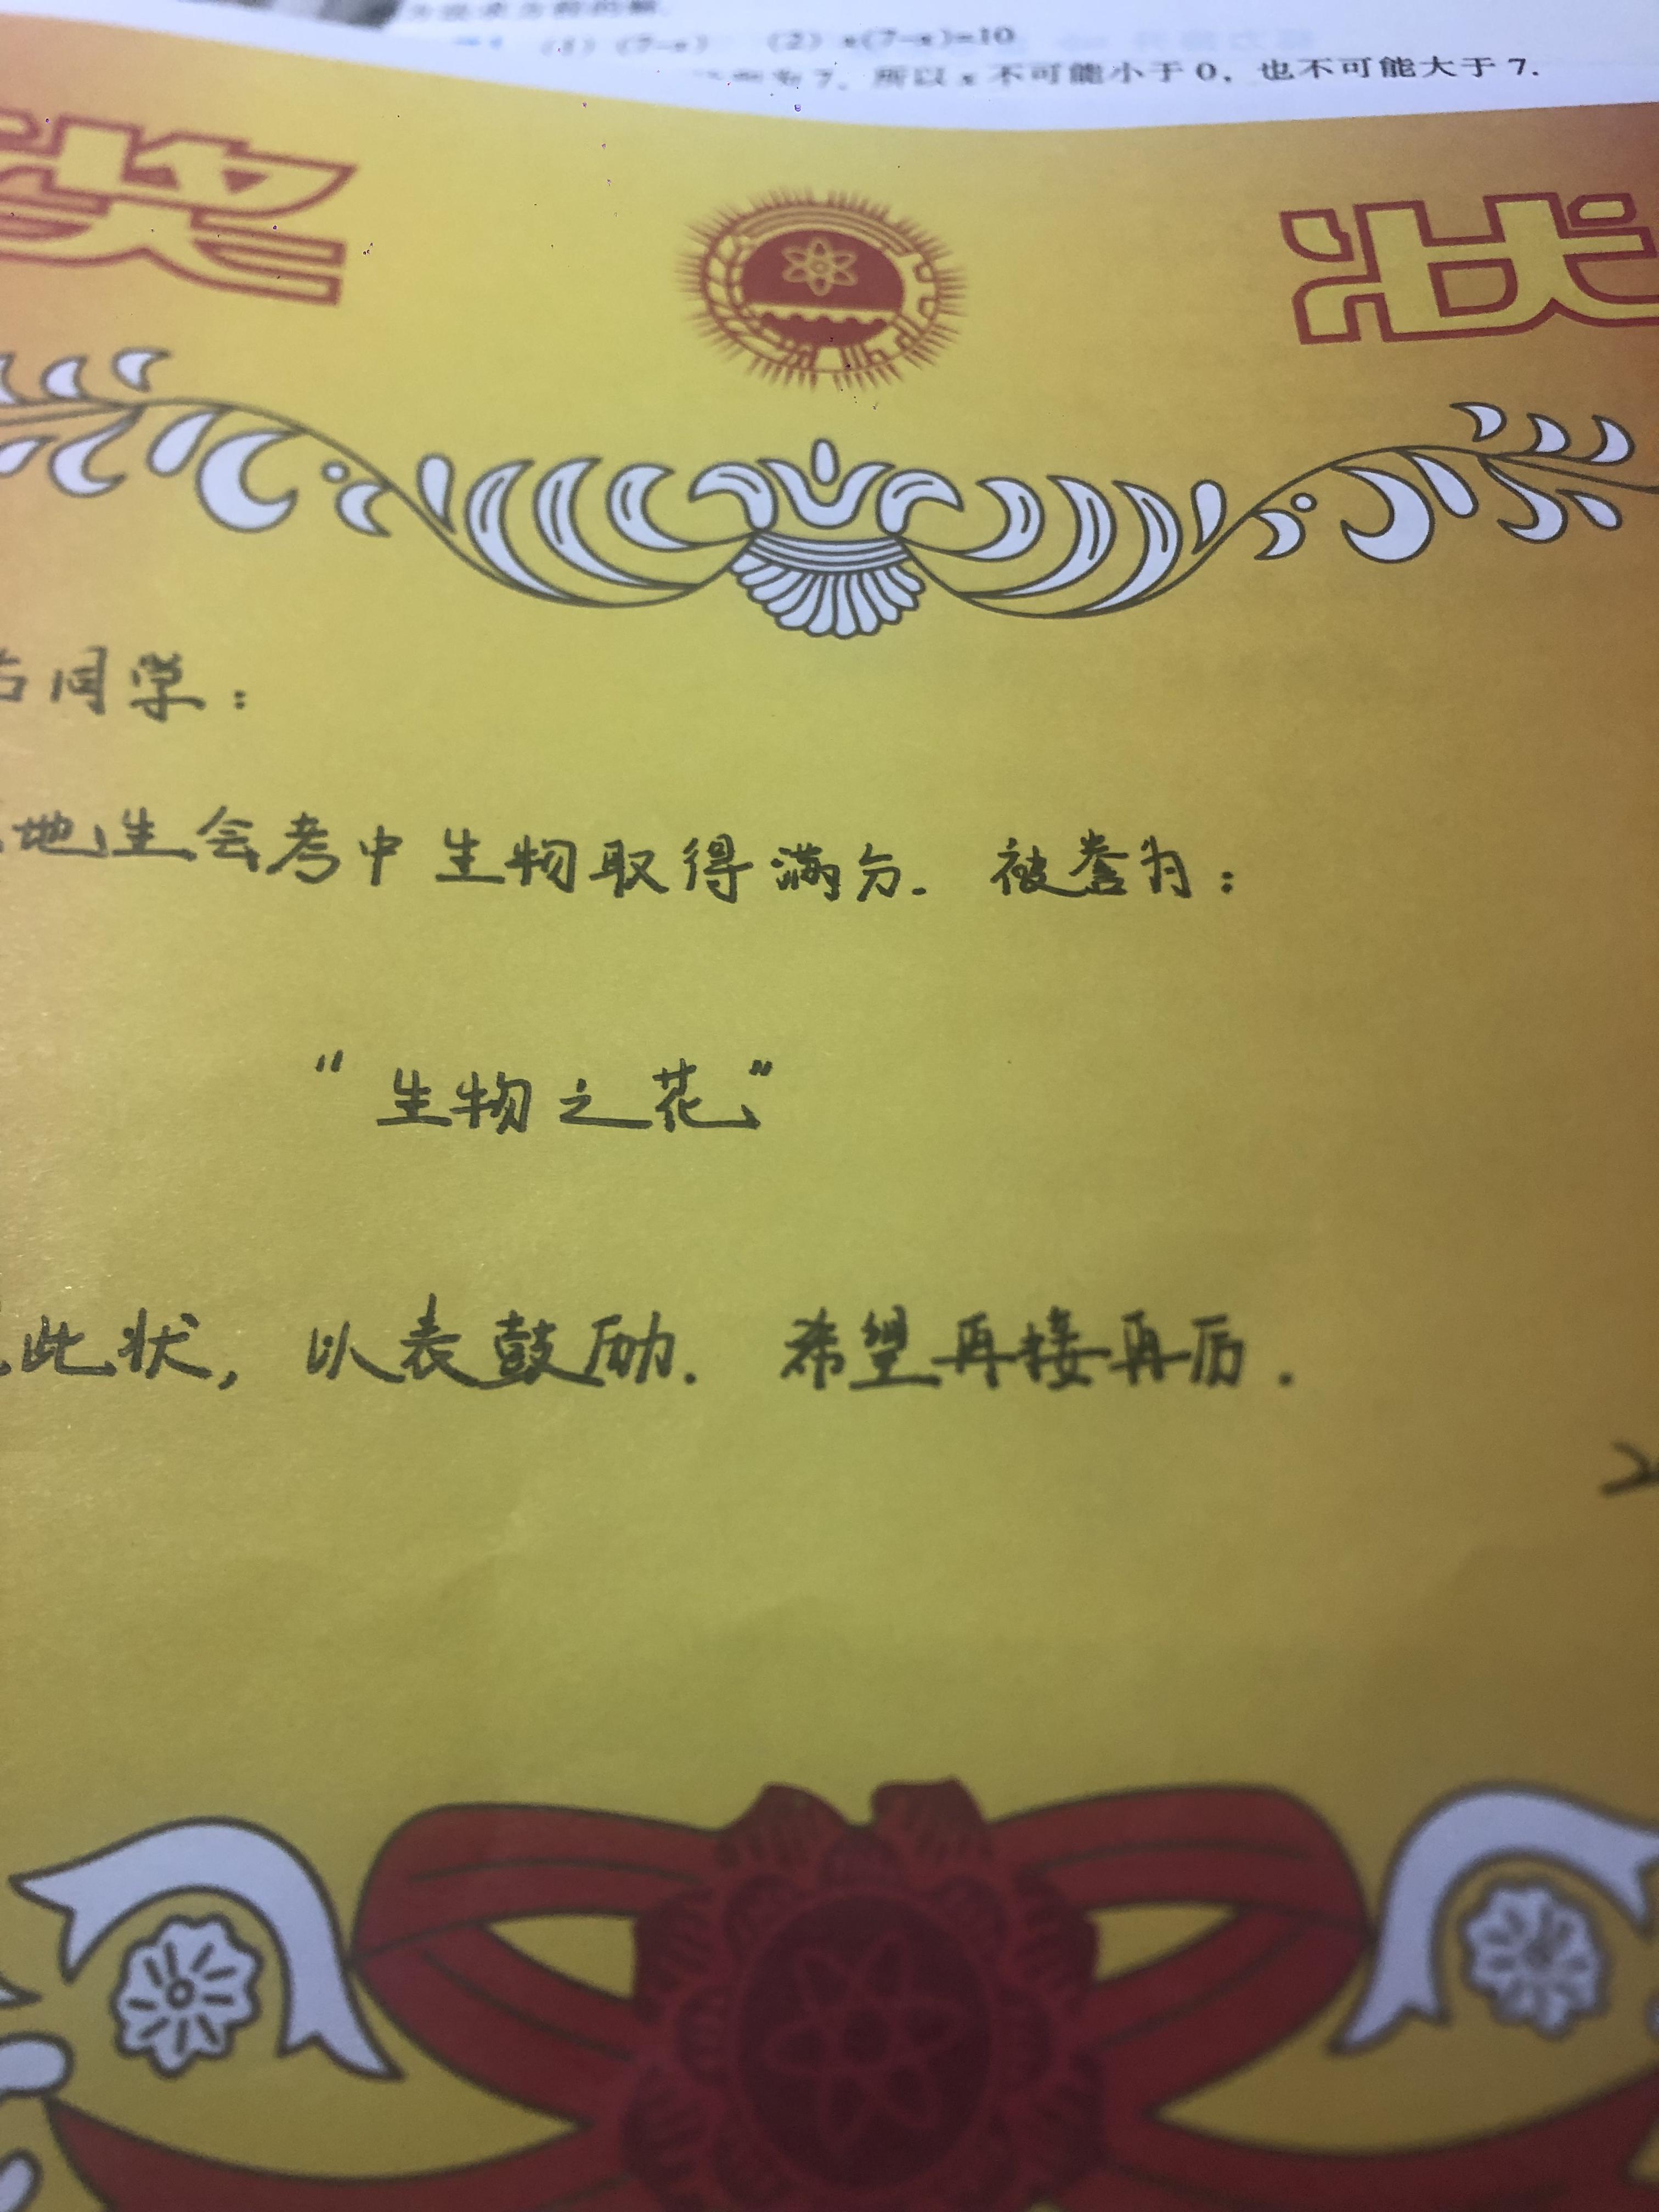 (1) (7-x) (2) x(7-x)=10
7，所以 x 不可能小于 0，也不可能大于 7.
奖 状
同学：
地生会考中生物取得满分. 被誉为：
“生物之花”
此状，以表鼓励. 希望再接再厉.